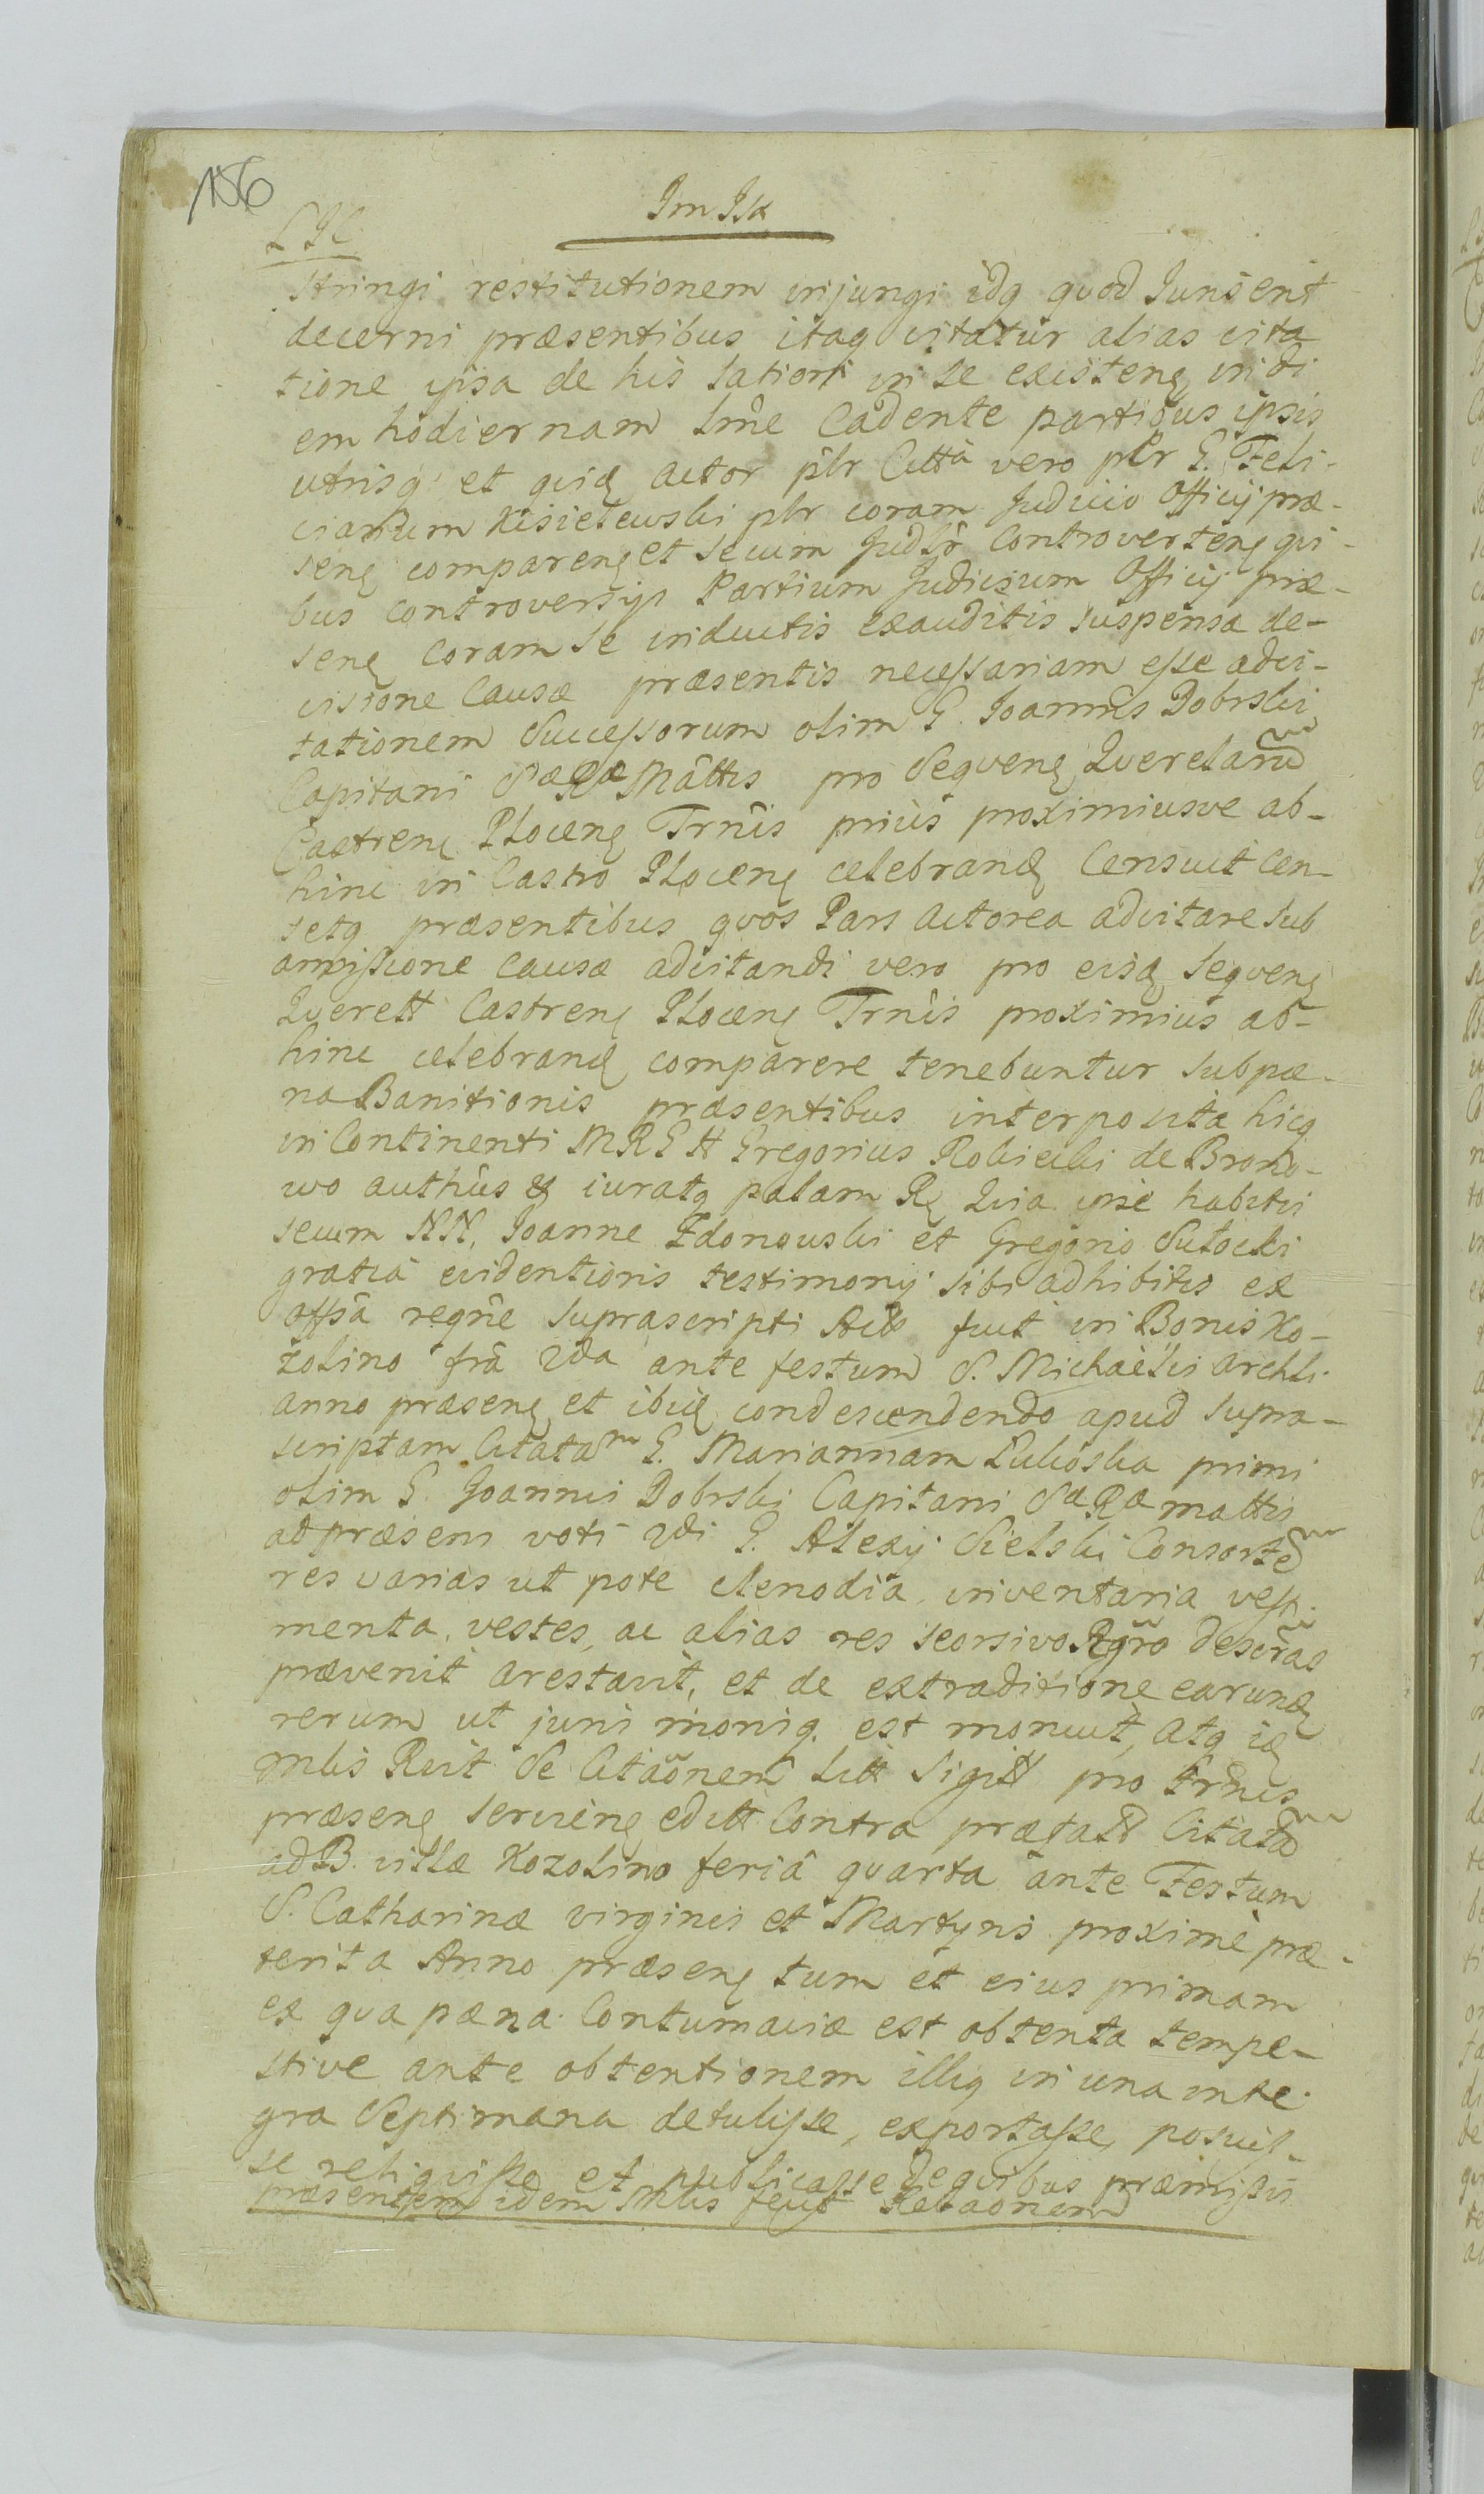 186
Im Isa
LIC
stringi restitutionem injungi idq quod Iuns erit
decerni præsentibus itaq citatur alias cita
tione ipsa de his latiori in se existenȩ in di
em hodiernam lmê Cadente partibus ipsis
utrisq et quiḍ actor plr Citta vero plr G. Feli-
cianum Kisielewski plr coram Judicio Officij præ-
senȩ comparenȩ et secum Judlr Controvertenȩ qui-
bus controversijs Partium Judicium Officij præ-
senȩ Coram se inductis exauditis suspensa de-
cisione Causæ præsentis necessariam esse adci-
tationem Successorum olim G. Joannis Dobrski
Capitani Sæ Ræ Mâttis pro Sequenȩ Querelarũ
Castrenȩ Plocenȩ Trnîs priùs proximiusve ab-
hinc in Castro Plocenȩ celebrandȩ Censuit Cen-
setq præsentibus quos Pars Actorea adcitare sub
amissione causæ adcitandi vero pro eisḍ sequenȩ
Querell Castrenȩ Plocenȩ Trnîs proximius ab-
hinc celebrandȩ comparere tenebuntur sub pæ-
na Banitionis præsentibus interposita hicq
in Continenti MRGH Gregorius Robiecki de Brono-
wo authûs & iuratq palam Rȩ Quia ipse habitis
secum NN, Joanne Zdonowski et Gregorio Sutocki
gratiâ evidentioris testimonij sibi adhibitis ex
offsâ regñe suprascripti Acts fuit in Bonis Ko-
zolino frâ 2da ante festum S. Michaëlis Archli
anno præsenȩ et ibiḍ condescendendo apud supra-
scriptam Citatam G. Mariannam Lukoska primi
olim G. Joannis Dobrski Capitani Sæ Ræ mattis
ad præsens voti 2di G. Alexij Sielski Consortẽ
res varias ut pote clenodia, inventaria vesti-
menta, vestes, ac alias res seorsivo Rgrõ descras
prævenit arestavit, et de extraditione earunḍ
rerum ut juri moniq. est monuit, Atq iḍ
mlis Reit Se Citaõnem Litt Sigill pro Trnîs
præsenȩ servienȩ editt Contra prætatt Citatã
ad B. villæ Kozolino feriâ quarta ante Festum
S. Catharinæ virginis et Martyris proximè præ-
terita Anno præsenȩ tum et eius primam
ex qua pæna Contumaciæ est obtenta tempe-
stive ante obtentionem illiq in una inte-
gra Septimana detulisse, exportasse, posuis-
se reliquisse et publicasse de quibus præmissis
præsentem idem Mlis fecit Relaõnem